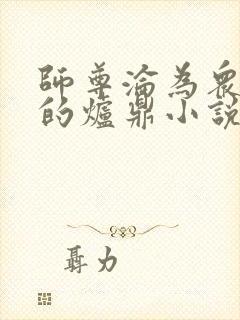 師尊淪為衆
的爐鼎小說
聶力